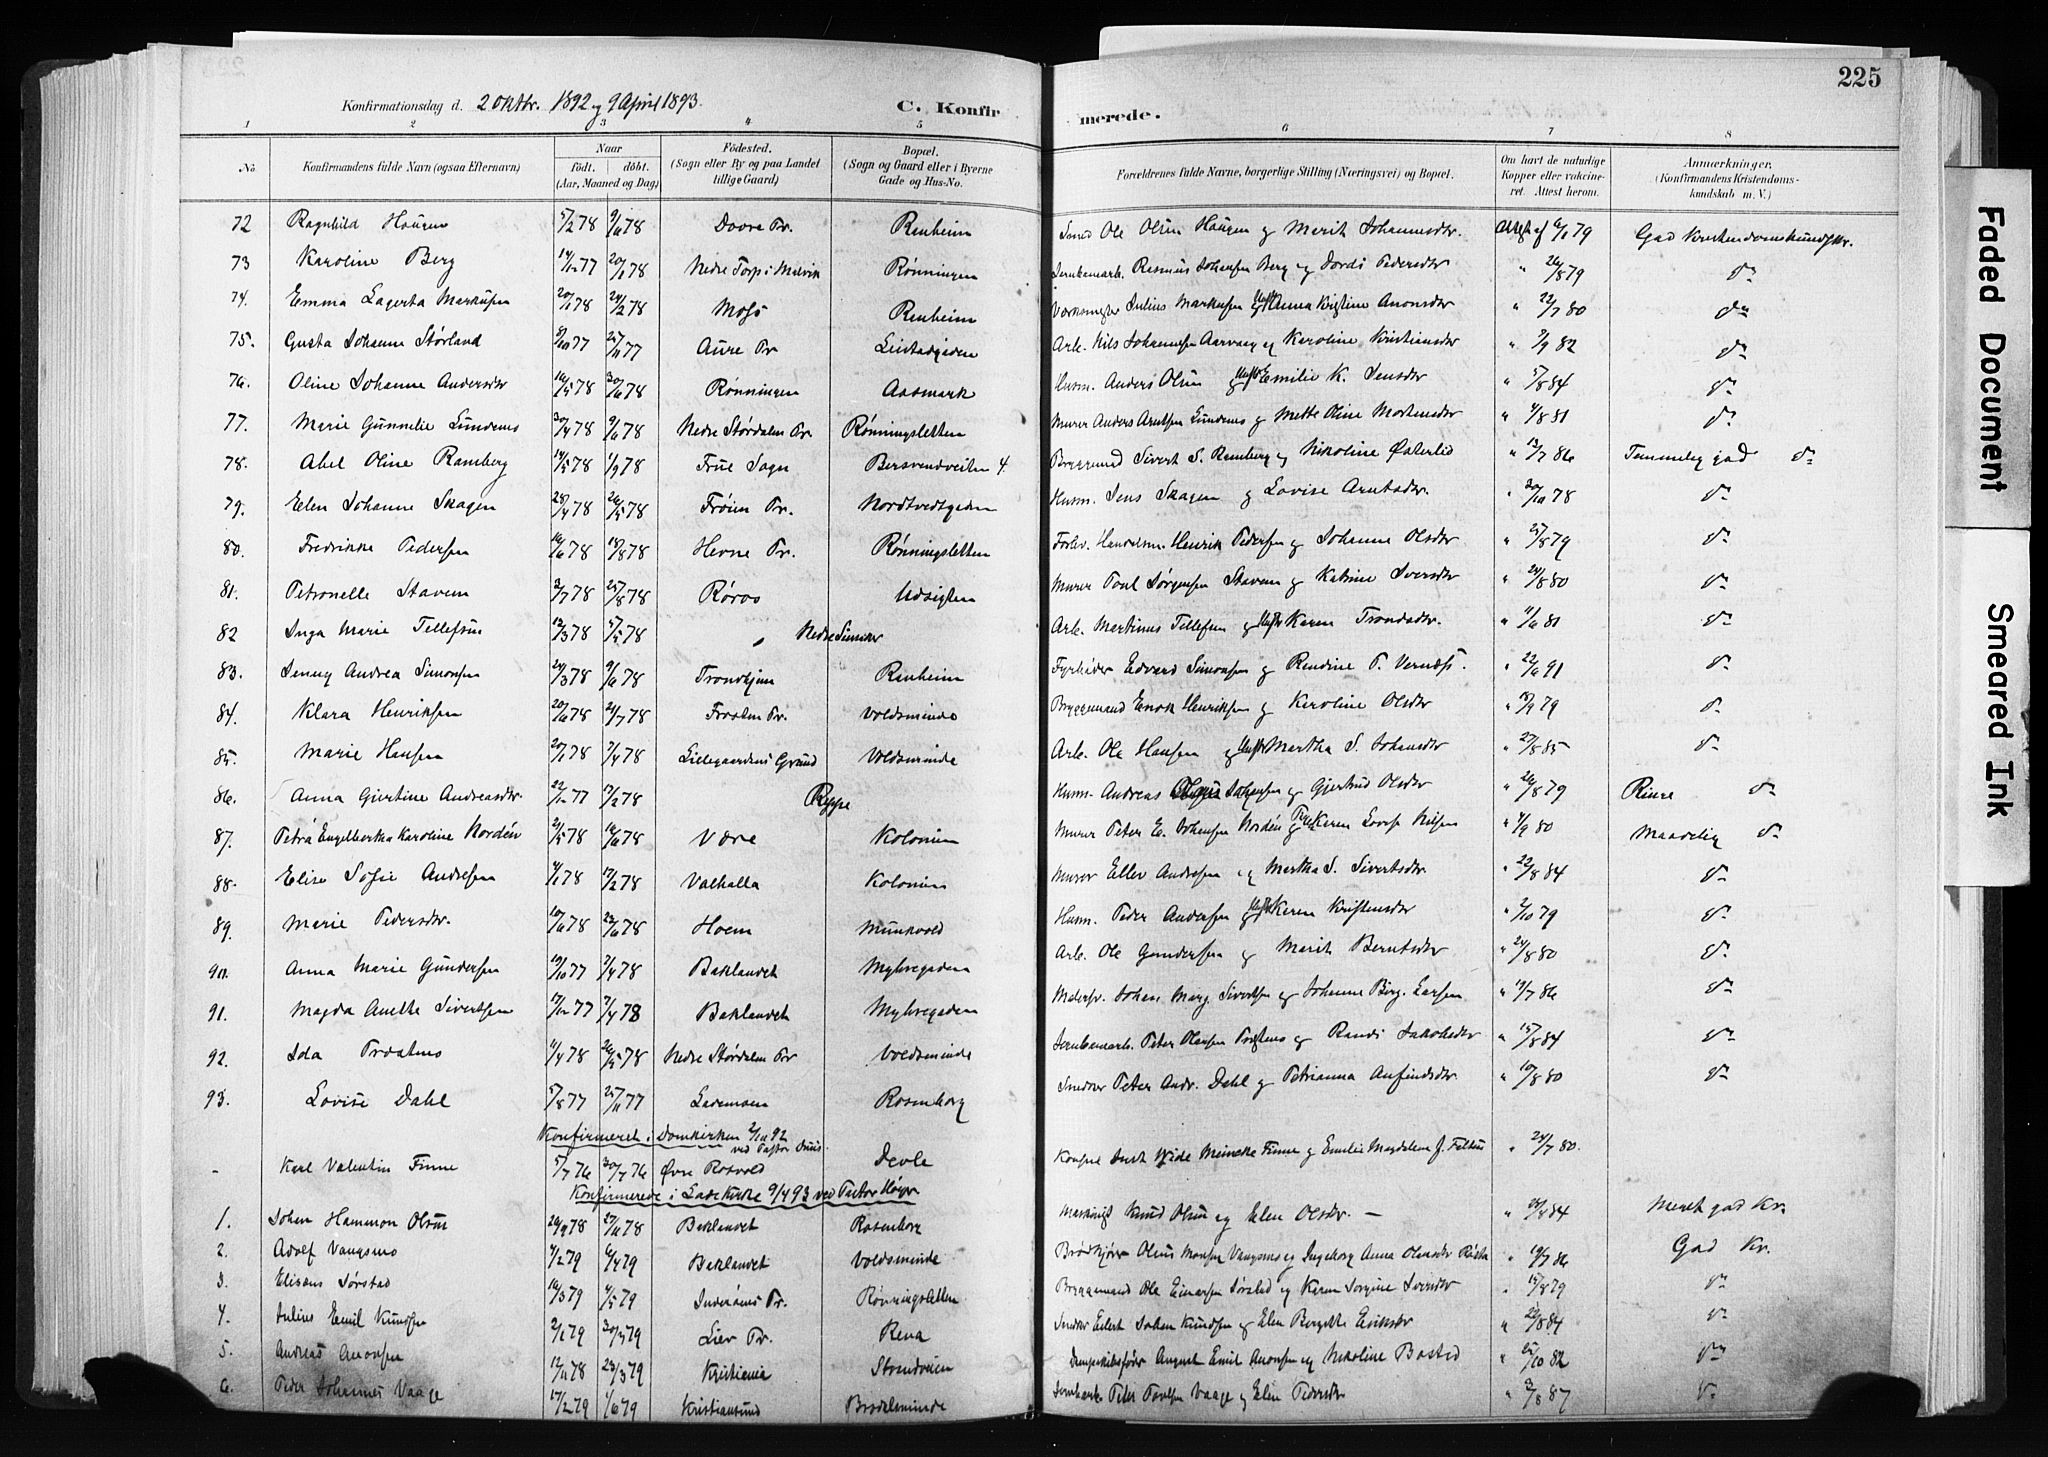 225
Konfirmationsdag d. 2 oktbr. 1892 og 9 April 1893.
C. Konfirmerede.
1 2 3 4 5 6 7 8
No
Konfirmandens fulde Navn (ogsaa Efternavn)
Naar
födt. döbt.
(Aar, Maaned og Dag)
Födested.
(Sogn eller By og paa Landet
tillige Gaard)
Bopæl.
(Sogn og Gaard eller i Byerne
Gade og Hus-No.
Forældrenes fulde Navne, borgerlige Stilling (Næringsvei) og Bopæl.
Om havt de naturlige
Kopper eller vakcine-
ret. Attest herom.
Anmærkninger.
(Konfirmandens Kristendoms-
kundskab m. V.)
72 Ragnhild Haugen 5/2 78 9/6 78 Dovre Pr. Renheim Smed Ole Olsen Haugen og Marit Johannesdtr. Attest af 6/1 79 God Kristendomskundskr.
73 Karoline Berg 14/12 77 20/1 78 Nedre Torp i Malvik Rønningen Jernbanearb. Rasmus Johansen Berg og Dordi Pedersdtr " 26/8 79 do
74. Emma Lagerta Markusen 20/1 78 24/2 78 Moss Renheim Værksmester Julius Markusen og Hustr Anna Kristine Aronsdtr " 22/7 80 do
75. Gusta Johanne Størland 8/10 77 25/11 77 Aure Pr Leistadgaden Arb. Nils Johannesen Aarvaag og Karoline Kristiansdtr " 7/9 82 do
76. Oline Johanne Andersdtr 16/5 78 30/6 78 Rønningen Aasmark Husm. Anders Olsen og Hustr Emilie K. Jensdtr " 5/8 84 do
77. Marie Gunnelie Lundemo 30/4 78 9/6 78 Nedre Størdalen Pr. Rønningsletten Murer Anders Arntsen Lundemo og Mette Oline Mortensdtr " 4/8 81 do
78. Abel Oline Ramberg 14/5 78 1/9 78 Frue Sogn Bersvendveiten 4. Bryggemand Sivert S. Ramberg og Nikoline Østerlid " 13/7 86 Temmelig god do
79. Elen Johanne Skagen 28/4 78 26/5 78 Frøien Pr. Nordtvedtgaden Husm. Jens Skagen og Lovise Arntsdtr. " 30/10 78 do
80. Fredrikke Pedersen 16/6 78 18/8 78 Hevne Pr. Rønningsletten Forhv. Handelsm. Henrik Pedersen og Johanne Olsdtr " 25/8 79 do
81. Petronelle Staven 3/7 78 25/8 78 Røros Udsigten Murer Poul Jørgensen Staven og Katrine Iversdtr " 24/8 80 do
82 Inga Marie Tellefsen 12/3 78 5/5 78 Nedre Arb. Martinus Tellefsen og Hustr Karen Trondsdtr. " 11/6 81 do
83. Jenny Andrea Simonsen 24/3 78 9/6 78 Trondhjem Renheim Fyrbøder Edvard Simonsen og Rendine P. Vernæs. " 22/6 91 do
84. Klara Henriksen 20/6 78 21/7 78 Frosten Pr. Voldsminde Bryggemand Enok Henriksen og Karoline Olsdtr " 18/9 79 do
85. Marie Hansen 20/1 78 7/4 78 Lillegaardens Grund Voldsminde Arb. Ole Hansen og Hustr Martha S. Johansdtr " 27/8 85 do
86. Anna Gjertine Andreasdtr. 22/12 77 17/2 78 Reppe Husm. Andreas Johansen og Gjertrud Olsdtr " 26/8 79 Ringe do
87. Petra Engelbertha Karoline Nordén 21/5 78 16/6 78 Være Kolonien Murer Peter E. Johansen Nordén og Karen Lovise Nilsen " 4/9 80 Maadelig do
88. Elise Sofie Andresen 4/1 78 17/2 78 Valhalla Kolonien Murer Eller Andresen og Martha S. Sivertsdtr. " 22/8 84 do
89. Marie Pedersdtr. 10/6 78 23/6 78 Hoem Munkvold Husm. Peder Andersen og Hustr Karen Kristensdtr " 2/10 79 do
90. Anna Marie Gundersen 19/10 77 7/4 78 Baklandet Myhregaden Arb. Ole Gundersen og Marit Berntsdtr " 24/8 80 do
91. Magda Anette Sivertsen 17/12 77 7/4 78 Baklandet Myhregaden Malersv. Johan Marg. Sivertsen og Johanne Berg. Larsen " 19/7 86 do
92. Ida Troatmo 11/4 78 26/5 78 Nedre Størdalen Pr Voldsminde Jernbanearb. Peter Olausen og Randi Jakobsdtr " 15/8 84 do
93. Lovise Dahl 5/8 77 25/11 77 Lademoen Rosenborg Snedker Peter Andr. Dahl og Petrianna Anfindsdtr " 10/8 80 do
Konfirmeret i Domkirken 2/10 92
ved Pastor
- Karl Valentin Finne 5/7 76 30/7 76 Øvre Rotvold Devle Konsul Just Wide Meincke Finne og Emilie Magdalene f. " 24/7 80.
Konfirmerede i Lade Kirke 9/4 93 ved Pastor Høyer
1. Johan Hammon Olsen 20/9 78 27/11 78 Baklandet Rosenborg Maskinist Knud Olsen og Elen Olsdtr. - " 26/8 84 Meget god Kr.
2. Adolf Vangsmo 4/2 79 6/4 79 Baklandet Voldsminde Brødkjører Olaus Monsen Vangsmo og Ingeborg Anna Olausdtr Røsta " 19/7 86 God Kr.
3. Elisæus Sørstad 16/3 79 4/5 79 Inderøens Pr. Rønningsletten Bryggemand Ole Einarsen Sørstad og Karen Sorgine Iversdtr " 15/8 79 do
4. Julius Emil Knudsen 2/1 79 30/3 79 Lier Pr. Rena Snedker Edert Johan Knudsen og Elen Bergitte Eriksdtr " 22/8 84 do
5. Andreas Aronsen 12/11 78 23/3 79 Kristiania Strandveien Dampskibsfører August Emil Aronsen og Nikoline Bastad " 25/10 82 do
6. Peder Johannes Vaage 17/2 79 1/6 79 Kristiansund Brodalsminde Jernbarb. Peter Paulsen Vaage og Elen Pedersdtr " 3/8 87 do
Faded Document
Smeared Ink